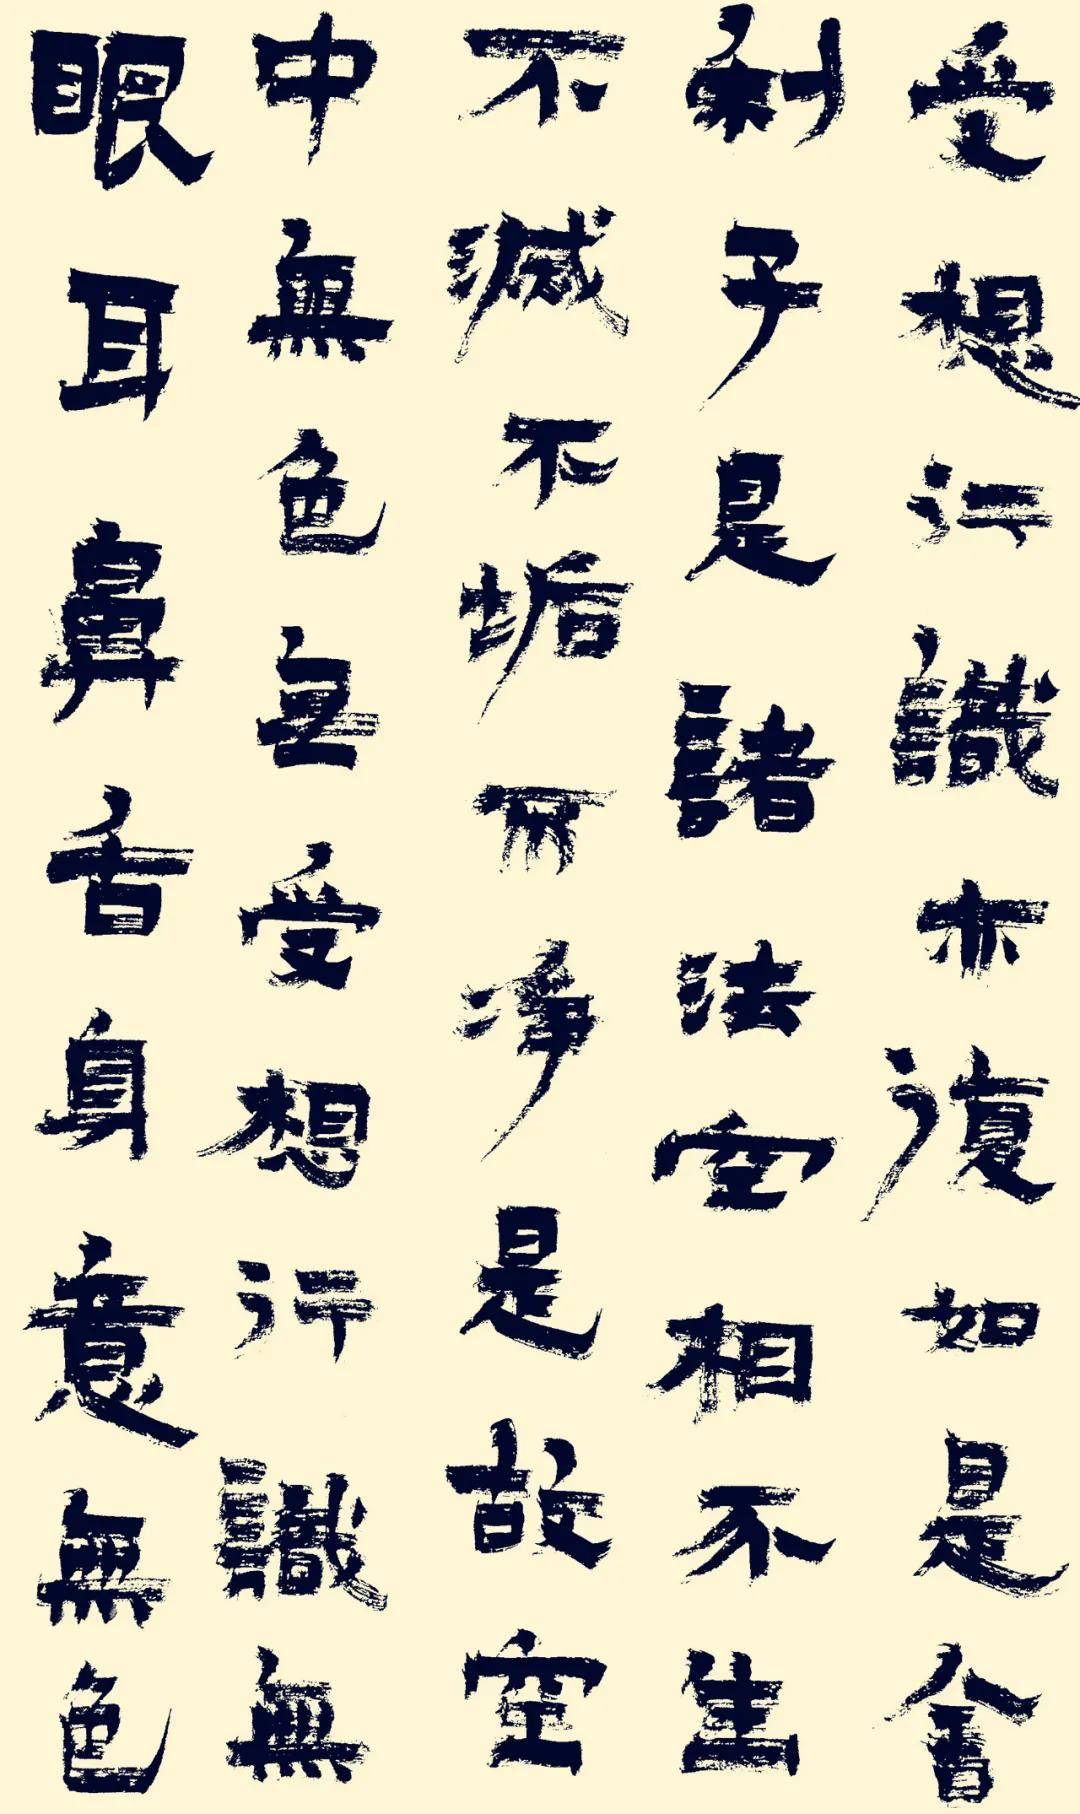 受想行識亦復如是舍
利子是諸法空相不生
不滅不垢不淨是故空
中無色無受想行識無
眼耳鼻舌身意無色